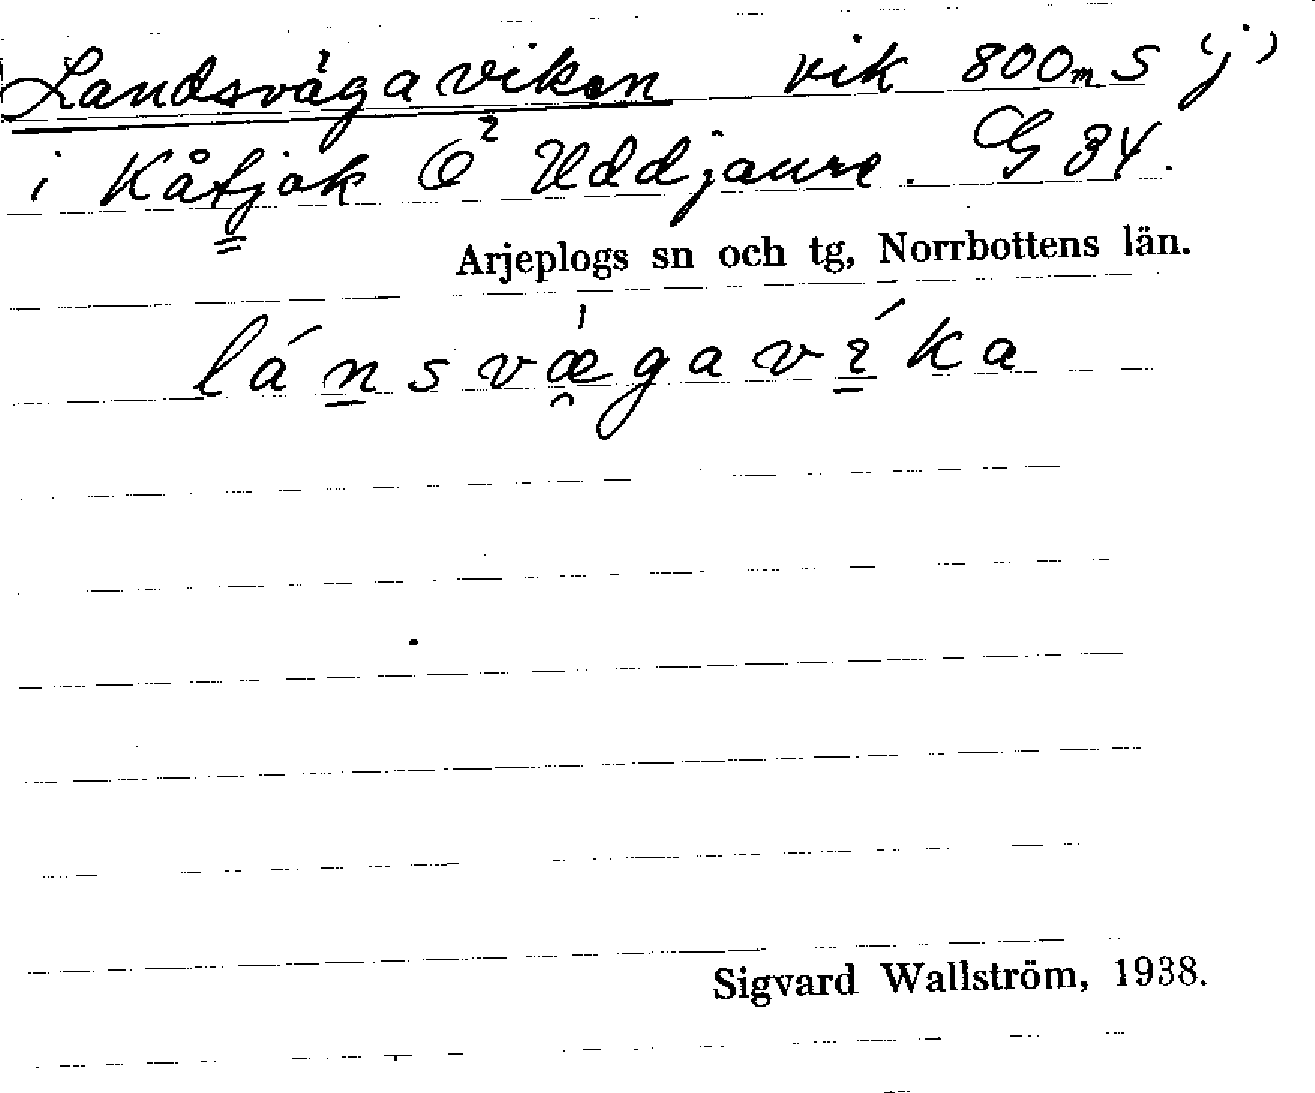 Landsvägaviken vik 800m S (j)
i Kåtjok Ö Uddjaure. G 34.
Arjeplogs sn och tg, Norrbottens län.
lánsvǽgavíka
Sigvard Wallström, 1938.